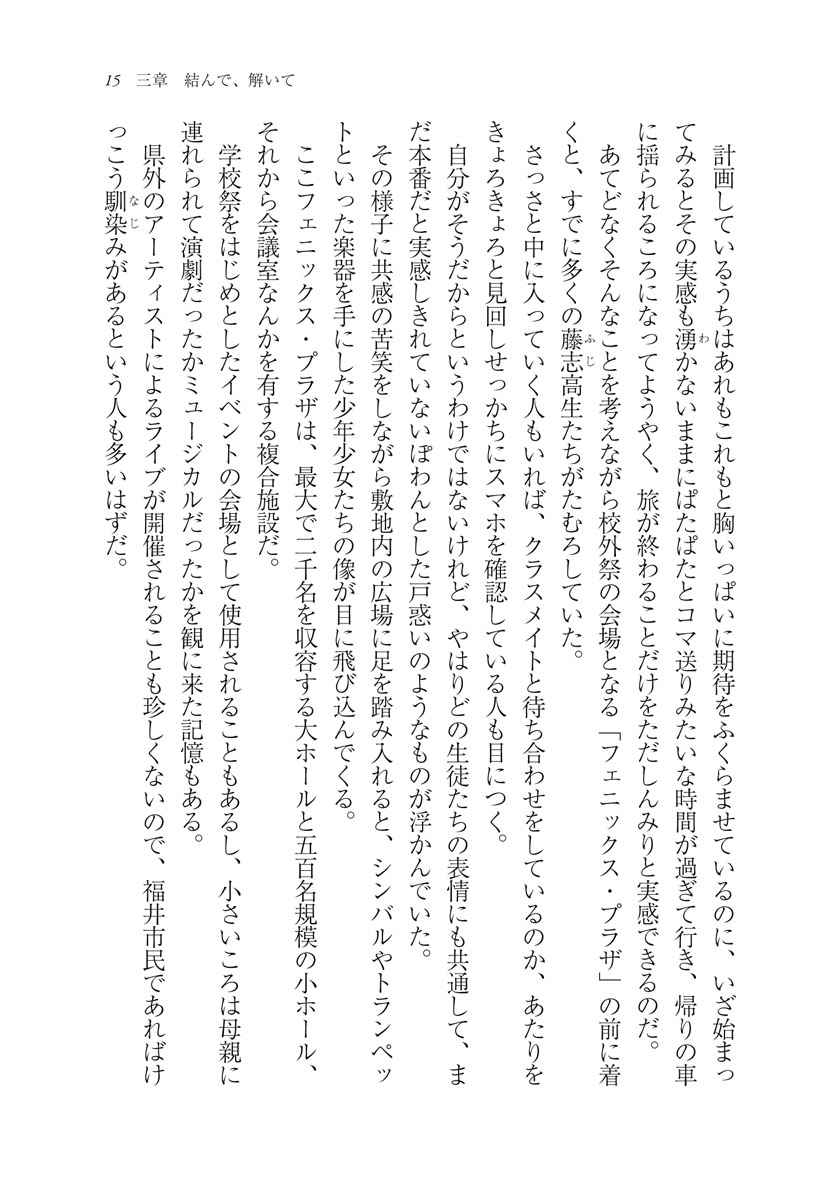 15 三章 結んで、解いて
計画しているうちはあれもこれもと胸いっぱいに期待をふくらませているのに、いざ始まっ
てみるとその実感も湧かないままにぱたぱたとコマ送りみたいな時間が過ぎて行き、帰りの車
に揺られるころになってようやく、旅が終わることだけをただしんみりと実感できるのだ。
あてどなくそんなことを考えながら校外祭の会場となる「フェニックス・プラザ」の前に着
くと、すでに多くの藤志高生たちがたむろしていた。
さっさと中に入っていく人もいれば、クラスメイトと待ち合わせをしているのか、あたりを
きょろきょろと見回しせっかちにスマホを確認している人も目につく。
自分がそうだからというわけではないけれど、やはりどの生徒たちの表情にも共通して、ま
だ本番だと実感しきれていないぽわんとした戸惑いのようなものが浮かんでいた。
その様子に共感の苦笑をしながら敷地内の広場に足を踏み入れると、シンバルやトランペッ
トといった楽器を手にした少年少女たちの像が目に飛び込んでくる。
ここフェニックス・プラザは、最大で二千名を収容する大ホールと五百名規模の小ホール、
それから会議室なんかを有する複合施設だ。
学校祭をはじめとしたイベントの会場として使用されることもあるし、小さいころは母親に
連れられて演劇だったかミュージカルだったかを観に来た記憶もある。
県外のアーティストによるライブが開催されることも珍しくないので、福井市民であればけ
っこう馴染みがあるという人も多いはずだ。